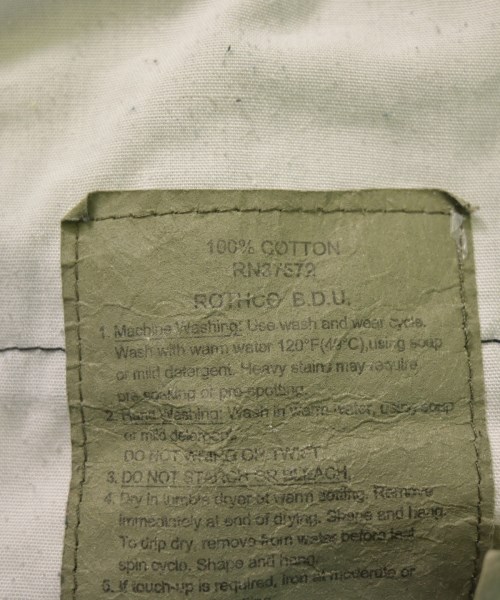 100% COTTON
RN37572
ROTHCO B.D.U.
1. Machine Washing: Use wash and wear cycle.
Wash with warm water 120°F(49°C),using soap
or mild detergent. Heavy stains may require
pre-soaking or pre-spotting.
2. Hand Washing: Wash in warm water, using soap
or mild detergent.
DO NOT WRING OR TWIST.
3. DO NOT STARCH OR BLEACH.
4. Dry in tumble dryer at warm setting. Remove
immediately at end of drying. Shape and hang.
To drip dry, remove from water before last
spin cycle. Shape and hang.
5. If touch-up is required, iron at moderate or